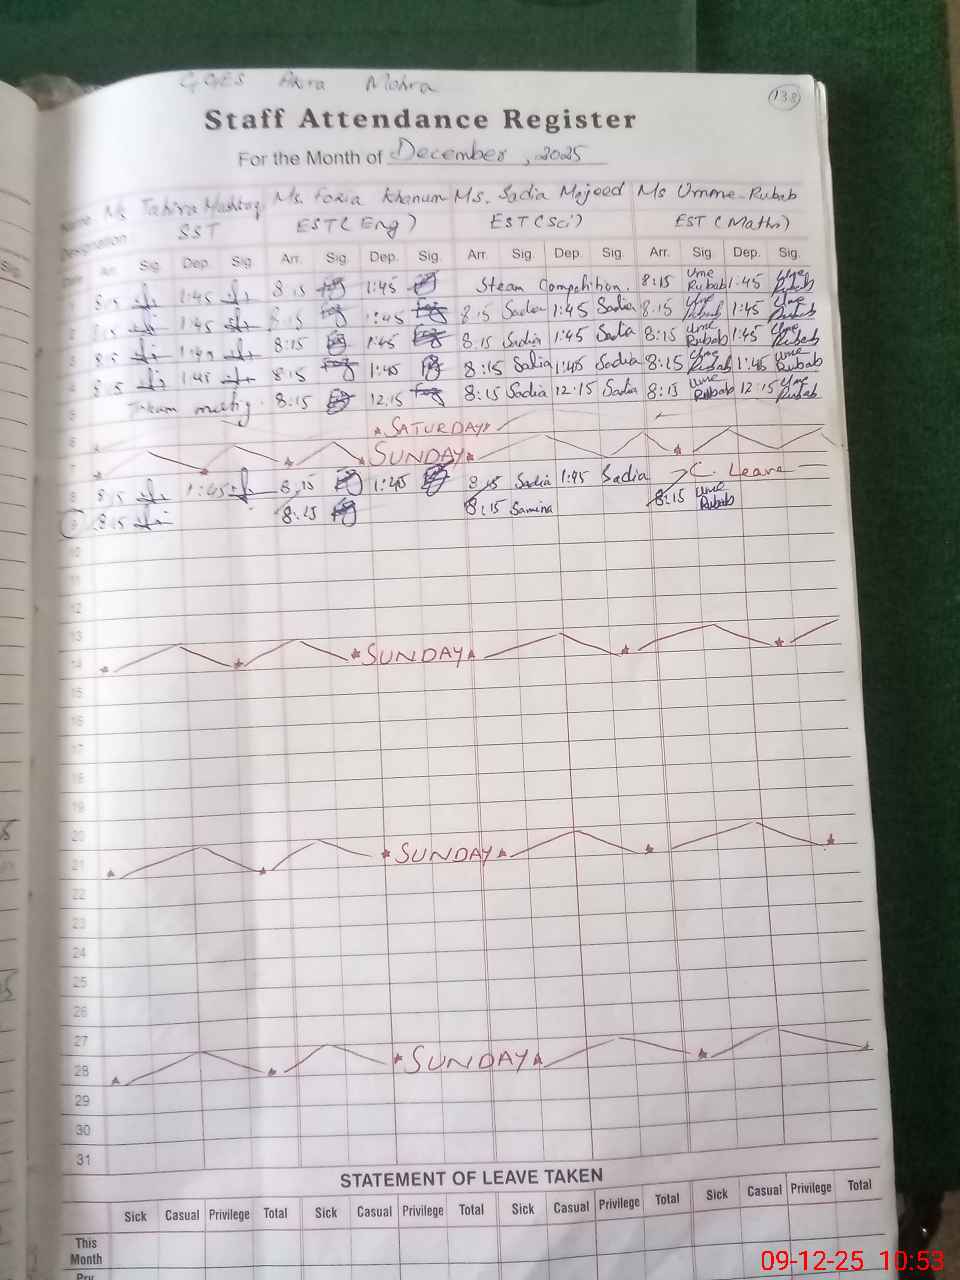 GGES Akra Mohra
138
Staff Attendance Register
For the Month of December, 2025
Name Ms Tahira Mushtaq Ms. Fozia Khanum Ms. Sadia Majeed Ms Umme-Rubab
Designation SST EST (Eng) EST (Sci) EST (Maths)
Arr. Sig. Dep. Sig. Arr. Sig. Dep. Sig. Arr. Sig. Dep. Sig. Arr. Sig. Dep. Sig.
8:15 1:45 8:15 1:45 Steam Competition. 8:15 Ume Rubab 1:45 Ume Rubab
8:15 1:45 8:15 1:45 8:15 Sadia 1:45 Sadia 8:15 Ume Rubab 1:45 Ume Rubab
3 8:15 1:45 8:15 1:45 8:15 Sadia 1:45 Sadia 8:15 Ume Rubab 1:45 Ume Rubab
4 8:15 1:45 8:15 1:45 8:15 Sadia 1:45 Sadia 8:15 Ume Rubab 1:45 Ume Rubab
5 meeting 8:15 12:15 8:15 Sadia 12:15 Sadia 8:15 Ume Rubab 12:15 Ume Rubab
6 SATURDAY
7 SUNDAY
8 8:15 1:45 8:15 1:45 8:15 Sadia 1:45 Sadia C. Leave
9 8:15 8:15 8:15 Samina 8:15 Ume Rubab
10
11
12
13
14 SUNDAY
15
16
17
18
19
20
21 SUNDAY
22
23
24
25
26
27
28 SUNDAY
29
30
31
STATEMENT OF LEAVE TAKEN
Sick Casual Privilege Total Sick Casual Privilege Total Sick Casual Privilege Total Sick Casual Privilege Total
This Month
Prv
09-12-25 10:53